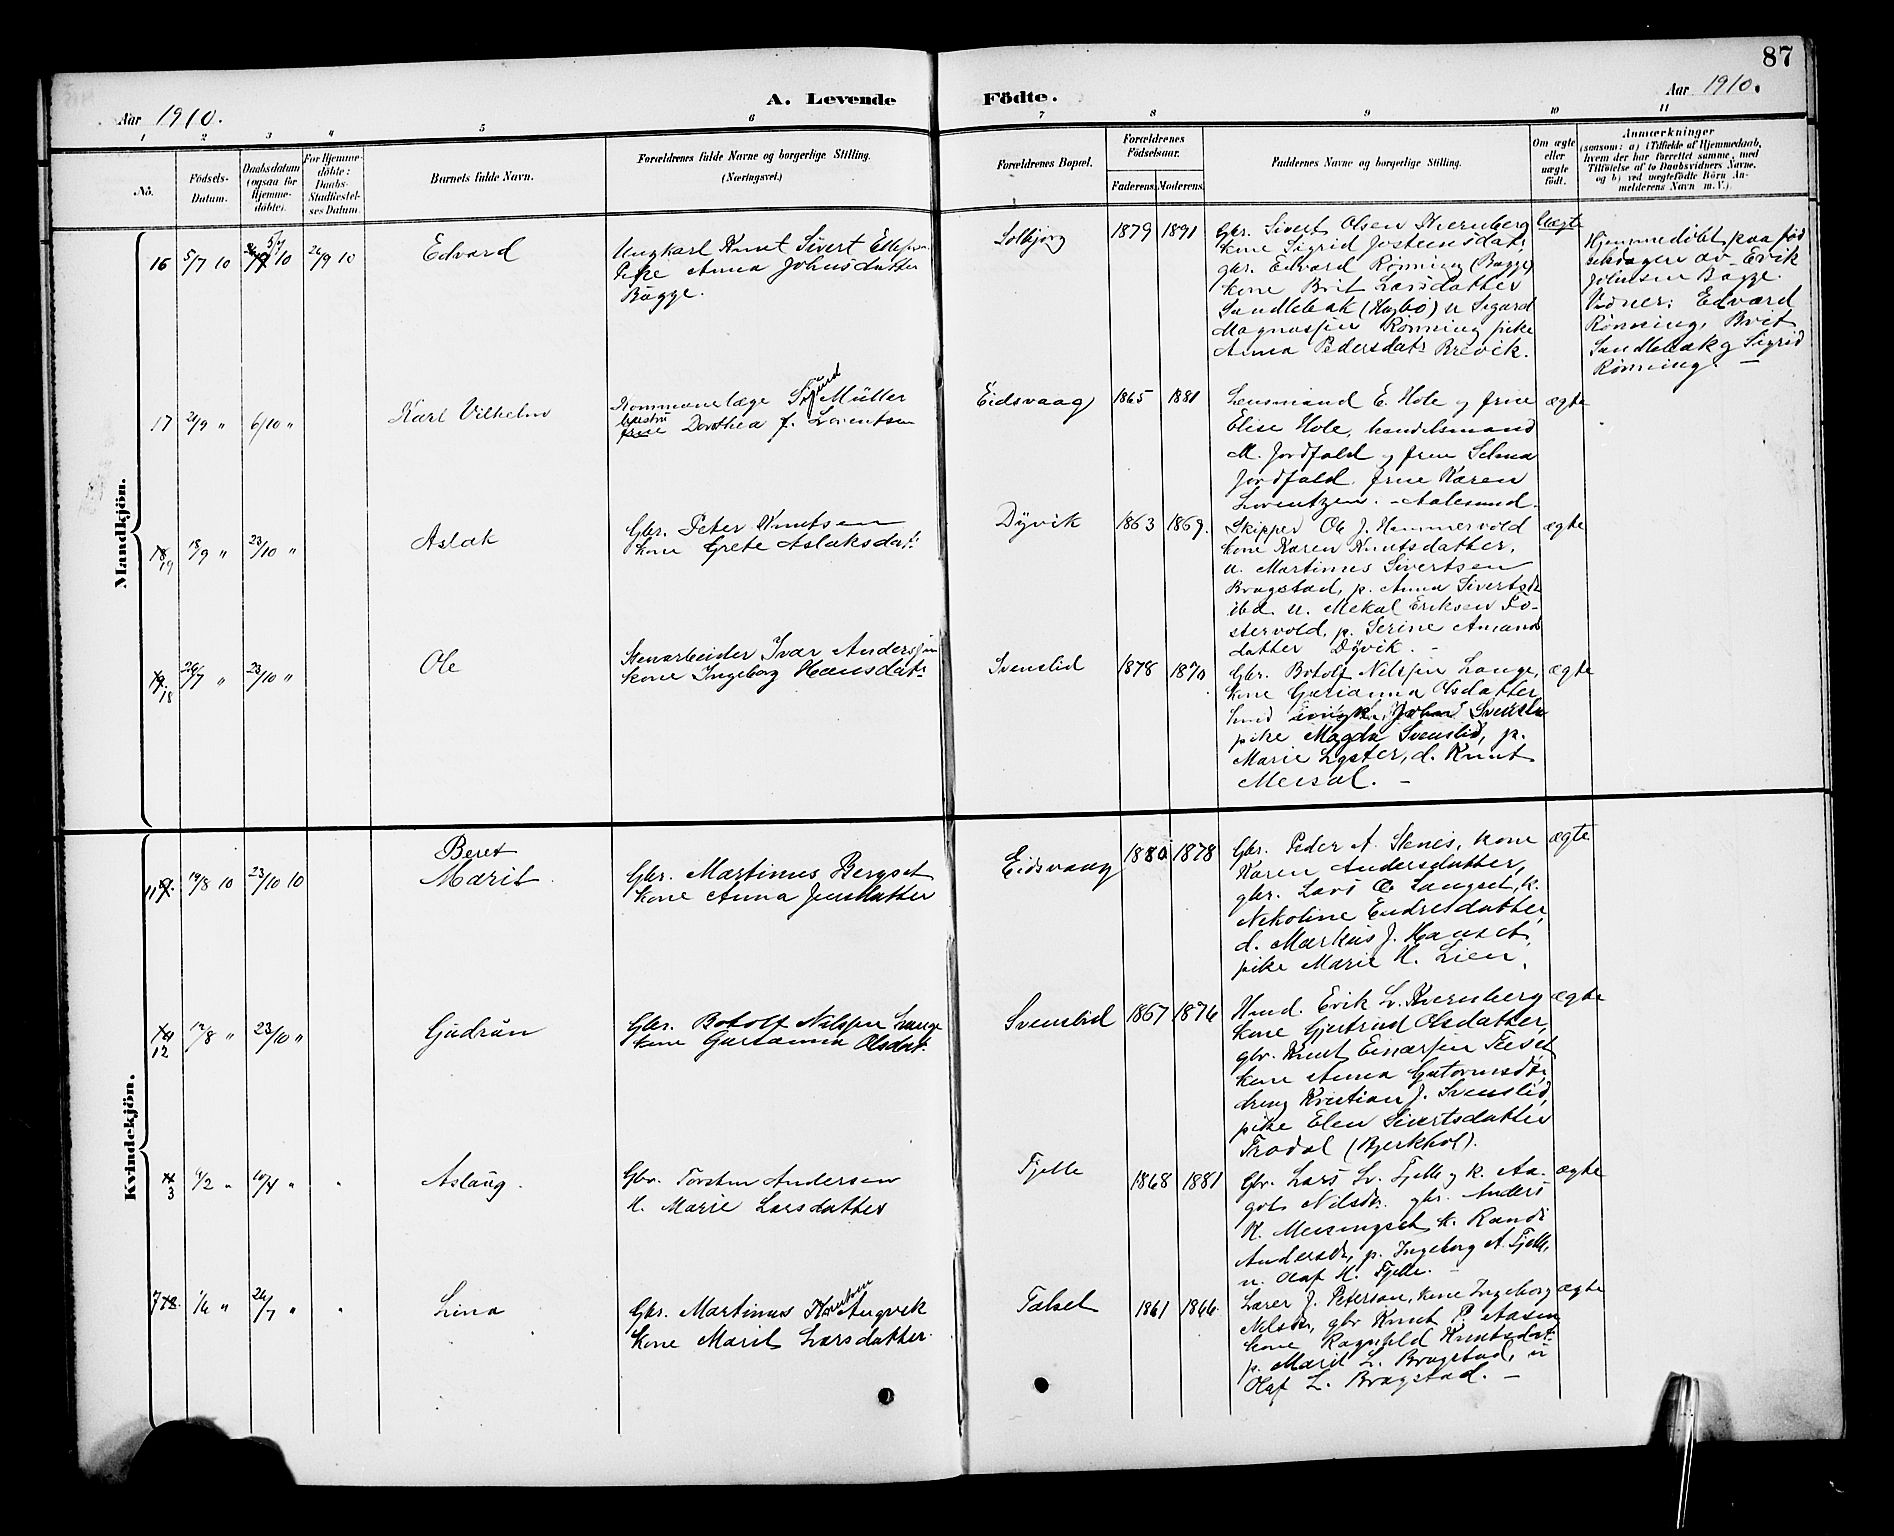 87
Aar 1910.
A. Levende Födte.
Aar 1910.
1 2 3 4 5 6 7 8 9 10 11
No.
Födsels-Datum.
Daabsdatum (ogsaa for Hjemme-döbte).
For Hjemme-döbte: Daabs-Stadfæstel-ses Datum.
Barnets fulde Navn.
Forældrenes fulde Navne og borgerlige Stilling.
(Næringsvei.)
Forældrenes Bopæl.
Forældrenes Födselsaar.
Faderens. Moderens.
Faddernes Navne og borgerlige Stilling.
Om ægte eller uægte födt.
Anmærkninger
(saasom: a) i Tilfælde af Hjemmedaab,
hvem der har forrettet samme, med
Tilföielse af to Daabsvidners Navne,
og b) ved uægtefödte Börn An-
melderens Navn m. V.).
Mandkjön.
16 5/7 10 5/7 10 26/9 10 Edvard
Ungkarl Knut Sivert
Pike Anna Johnsdatter
Bugge.
Solbjørg 1879 1891
Gbr. Sivert Olsen Kvernberg
kone Sigrid Josteinsdatr
gbr. Edvard Rønning (Bugge)
kone Brit Larsdatter
Sandlebak (Hagbø) u Sigurd
Magnussen Rønning pike
Anna Pedersdatr Brevik.
Uægte
Hjemmedøbt paa fød
selsdagen av Erik
Johnsen Bugge.
Vidner: Edvard
Rønning, Brit
Sandlebak og Sigrid
Rønning. —
17 21/9 " 6/10 " Karl Vilhelm
Kommunelæge Sigurd Müller
hustru
frue Dorthea f. Lorentsen
Eidsvaag 1865 1881
Lensmand E. Hole og frue
Elise Hole, handelsmand
M. Jordfald og frue Selma
Jordfald, frue Karen
Lorentzen. - Aalesund.
ægte
18 19 18/9 " 23/10 " Aslak
Gbr. Peter Knutsen
kone Grete Aslaksdatr
Dÿvik 1863 1869.
Skipper Ole J. Hammervold
kone Karen Knutsdatter,
u. Martinus Sivertsen
Bragstad, p. Anna Sivertsdr
ibd. u. Mekal Eriksen To-
stervold, p. Serine Amunds
datter Dÿvik. -
ægte
19. 18 26/7 " 23/10 " Ole
Stenarbeider Ivar Anderssen
kone Ingeborg Hansdatr
Svenslid 1878 1870
Gbr. Botolf Nilssen Lange,
kone Gurianna Olsdatter
hmd Johan Svensli
pike Magda Svenslid, p.
Marie Lyster, d. Knut
Meisal. -
ægte
Kvindekjön.
11 19/8 10 23/10 10 Beret
Marit.
Gbr. Martinus Bergset
kone Anna Jensdatter
Eidsvaag 1880 1878
Gbr. Peder A. Stenes, kone
Karen Andersdatter,
gbr. Lars O. Langset, k.
Nekoline Endresdatter,
d. Markus J. Hauset,
pike Marie H. Lien.
ægte
12 12/8 " 23/10 " Gudrun
Gbr. Botolf Nilssen Lange
kone Gurianna Olsdatr
Svenslid 1867 1876
Hmd. Erik L. Kvernberg
kone Gjertrud Olsdatter,
gbr. Knut Einarsen Teset
kone Anna Gutormsdr,
dreng Kristian J. Svenslid,
pike Elen Sivertsdatter
Trodal (Bjerkhol).
ægte
3 6/2 " 10/4 " " Aslaug.
Gbr. Torsten Andersen
K. Marie Larsdatter
Tjelle 1868 1881
Gbr. Lars L. Tjelle og k. Aa-
got Nilsdr. gbr. Anders
H. Meisingset k. Randi
Andersdr, p. Ingeborg A. Tjelle,
u. Olaf H. Tjelle. -
ægte
7 1/6 " 26/7 " " Lina
Gbr. Martinus Knutsen Angvik
kone Marit Larsdatter.
Talset 1861 1866.
Lærer J. Peterson, kone Ingeborg
Nelsdr, gbr Knut P. Aasen
kone Ragnhild Knutsdatr
p. Marit L. Bragstad, u
Olaf L. Bragstad. -
ægte